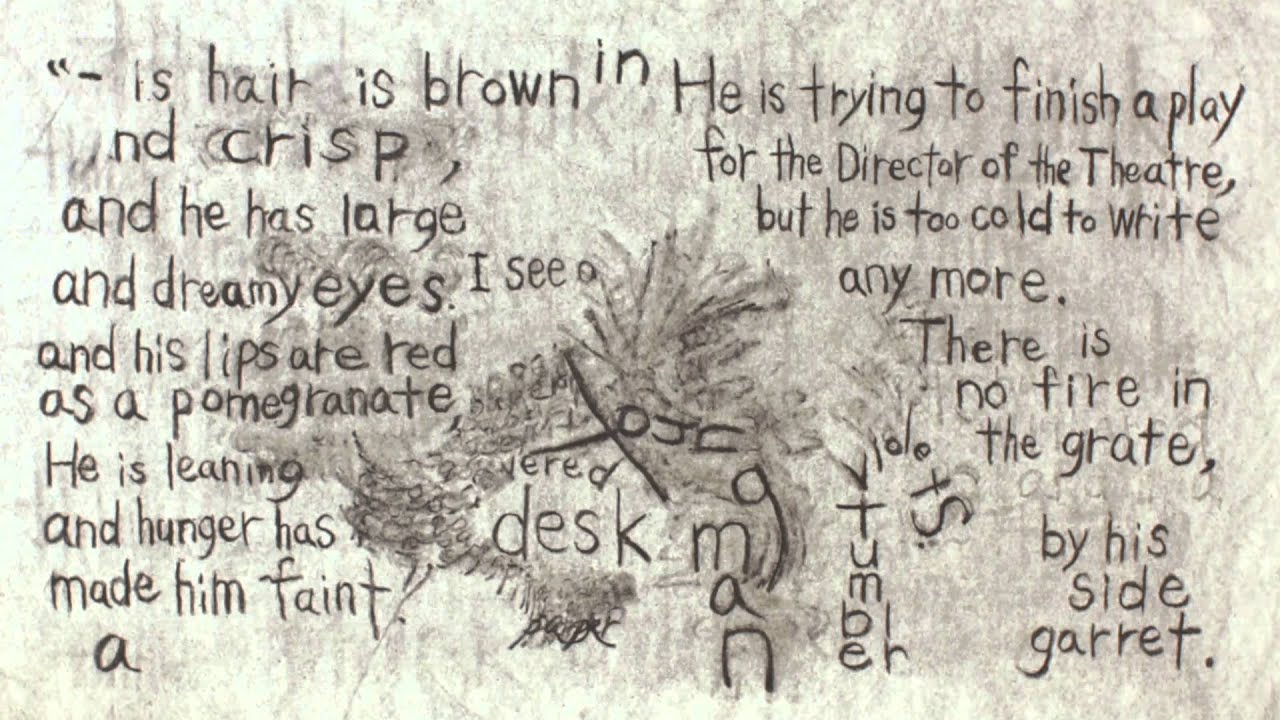 "- is hair is brown
nd crisp,
and he has large
and dreamy eyes.
and his lips are red
as a pomegranate,
He is leaning
and hunger has
made him faint.
a
in
I see a
young
man
vered
desk
paper
violets.
tumbler
He is trying to finish a play
for the Director of the Theatre,
but he is too cold to write
any more.
There is
no fire in
the grate,
by his
side
garret.